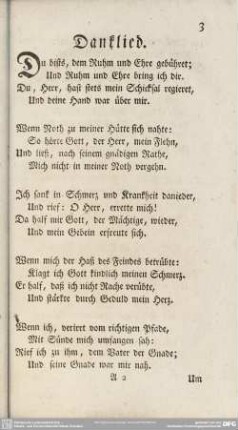 3
Danklied.
Du bists, dem Ruhm und Ehre gebühret;
Und Ruhm und Ehre bring ich dir.
Du, Herr, hast stets mein Schicksal regieret,
Und deine Hand war über mir.
Wenn Noth zu meiner Hütte sich nahte:
So hörte Gott, der Herr, mein Flehn,
Und ließ, nach seinem gnädigen Rathe,
Mich nicht in meiner Noth vergehn.
Ich sank in Schmerz und Krankheit danieder,
Und rief: O Herr, errette mich!
Da half mir Gott, der Mächtige, wieder,
Und mein Gebein erfreute sich.
Wenn mich der Haß des Feindes betrübte:
Klagt ich Gott kindlich meinen Schmerz.
Er half, daß ich nicht Rache verübte,
Und stärkte durch Geduld mein Herz.
Wenn ich, verirrt vom richtigen Pfade,
Mit Sünde mich umfangen sah:
Rief ich zu ihm, dem Vater der Gnade;
Und seine Gnade war mir nah.
A 2 Um